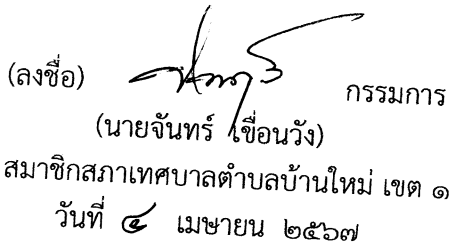 (ลงชื่อ) กรรมการ
(นายจันทร์ เขื่อนวัง)
สมาชิกสภาเทศบาลตำบลบ้านใหม่ เขต ๑
วันที่ ๔ เมษายน ๒๕๖๗